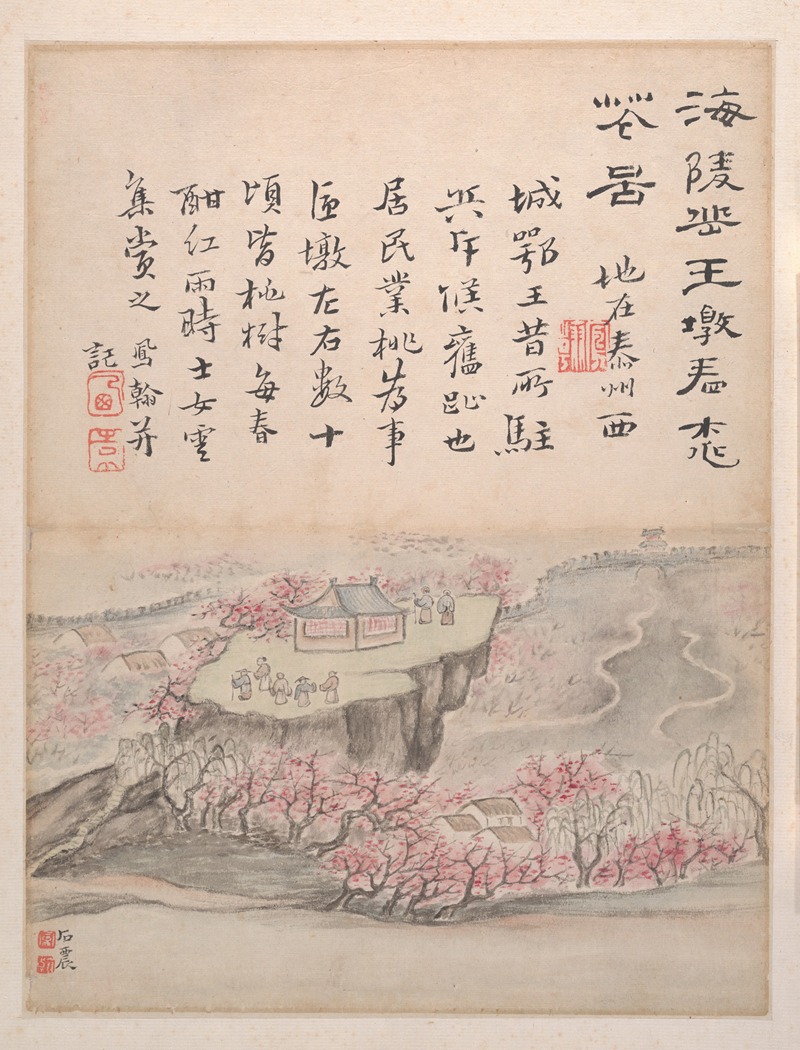 海陵岳王墩看桃
地在泰州西
城鄂王昔所駐
兵斥候舊趾也
居民業桃為事
匝墩左右數十
頃皆桃樹每春
酣紅雨時士女雲
集賞之 鳳翰并
記
石震